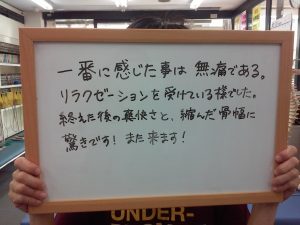 一番に感じた事は 無痛である。
リラクゼーションを受けている様でした。
終えた後の爽快さと、縮んだ骨幅に
驚きです! また来ます!
UNDER-